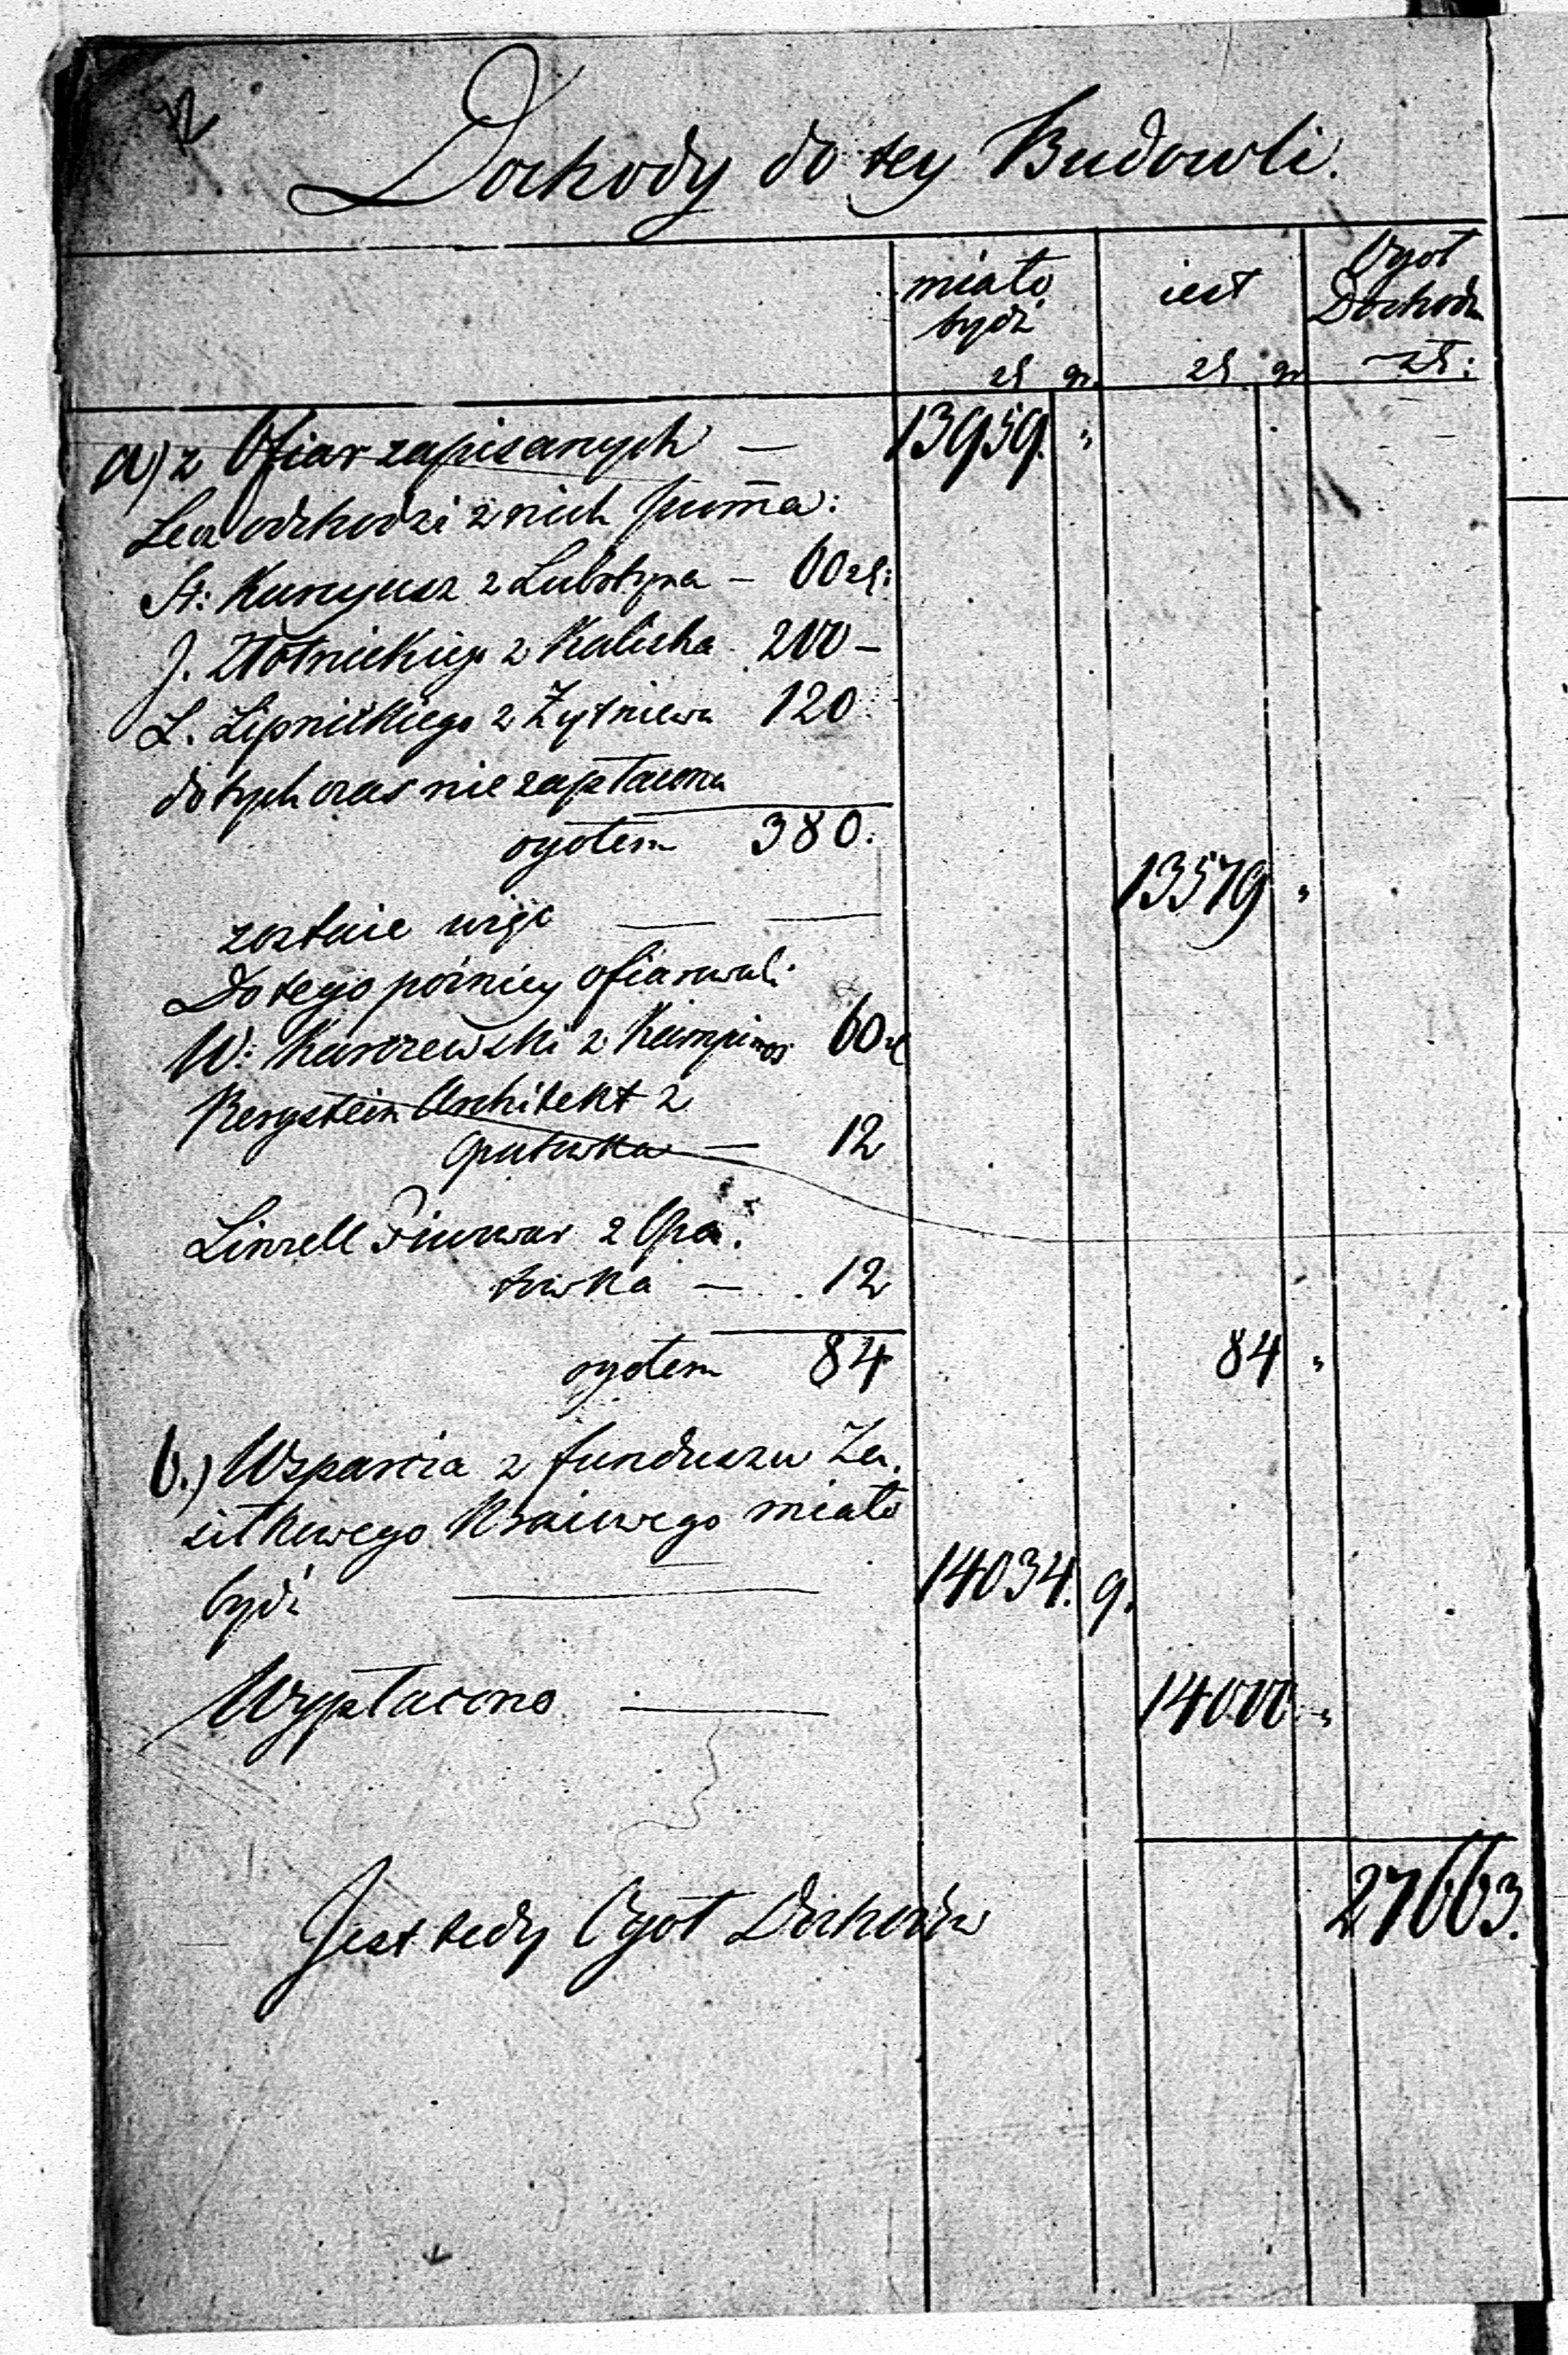 Dochody do tey Budowli.
miało
bydź
zł gr.
iest
zł gr
Ogół
Dochodu
zł:
a) z Ofiar zapisanych — 13959. "
Lecz odchodzi z nich summa:
St: Kunyusz z Lubstyna — 60 zł:
J. Złotnickiego z Kalisha 200 —
L. Lipnickiego z Żytniewa 120
dotychczas nie zapłacona
ogołem 380.
13579 "
zostaie więc —
Do tego pożniey ofiarowali
W: Karczewski z Kampinos 60 zł
Bergstein Architekt z
Opatowka — 12
Linzell Piwowar z Opa.
towka — 12
ogołem 84 84 "
b.) Wsparcia z funduszu Za.
siłkowego Kraiowego miało
bydź — 14034. 9.
Wypłacono — 14000 "
Jest tedy Ogół Dochodu 27663.